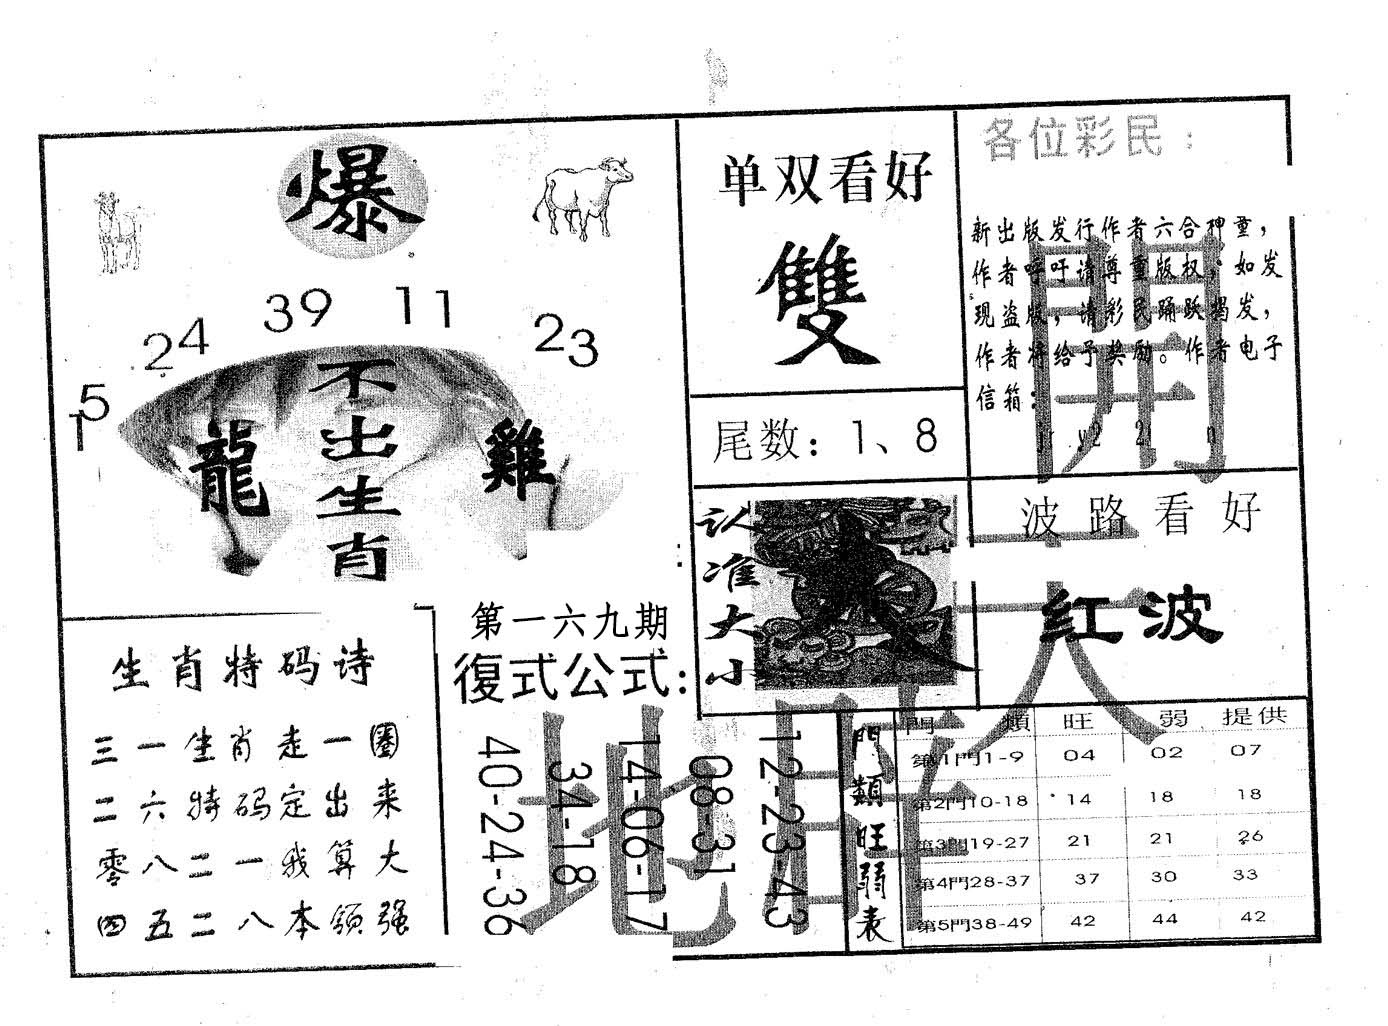 爆
15
24
39
11
23
不出生肖
龍
雞
单双看好
雙
尾数：1、8
各位彩民：
新出版发行作者六合神童，
作者呼吁请尊重版权，如发
现盗版，请彩民踊跃揭发，
作者将给予奖励。作者电子
信箱：
開
认准大小
大
波路看好
红波
天
生肖特码诗
三一生肖走一圈
二六特码定出来
零八二一我算大
四五二八本领强
第一六九期
復式公式：
40-24-36
34-18
14-06-17
08-31
12-23-43
地
門類旺弱表
門類 旺 弱 提供
第1門1-9 04 02 07
第2門10-18 14 18 18
第3門19-27 21 21 26
第4門28-37 37 30 33
第5門38-49 42 44 42